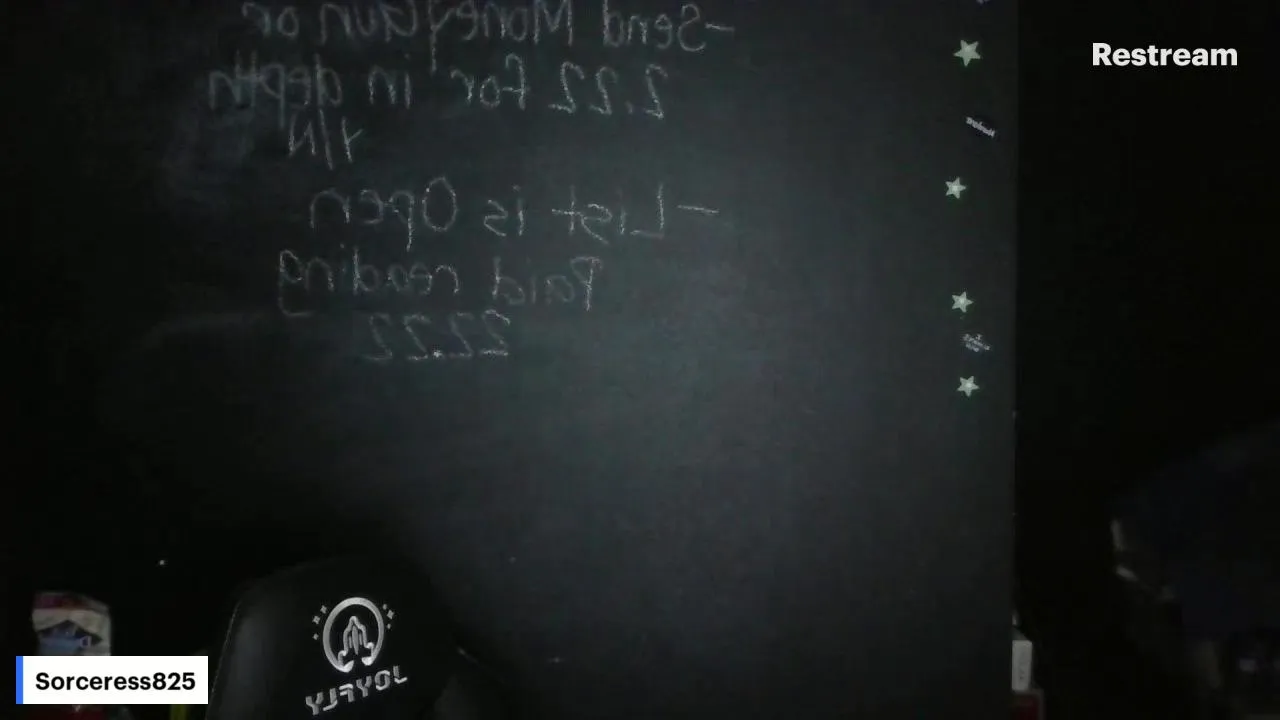 -Send MoneyGun or
2.22 for in depth
Y/N
-List is Open
Paid reading
22.22
Restream
JOYFLY
Sorceress825